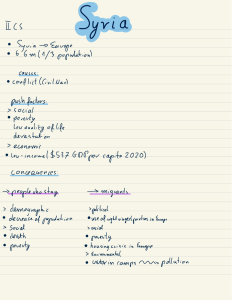 IICS
Syria
• Syria → Europe
• 6.6m (1/3 population)
causes:
• conflict (Civil War)
push factors:
> social
• poverty
low quality of life
devastation
> economic
• low-income ($537 GDP per capita 2020)
Consequences:
→ people who stay
→ migrants
> demographic
• decrease of population
> social
• death
• poverty
> political
• rise of right-winged parties in Europe
> social
• poverty
• housing crisis in Europe
> Environmental
• water in camps pollution